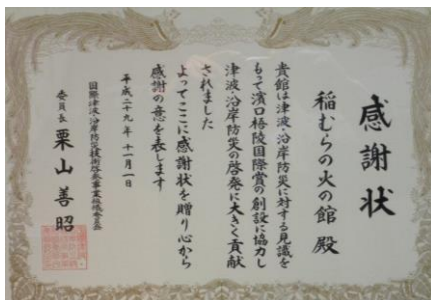 感謝状
稲むらの火の館 殿
貴館は津波・沿岸防災に対する見識を
もって濱口梧陵国際賞の創設に協力し
津波・沿岸防災の啓発に大きく貢献
されました
よってここに感謝状を贈り心から
感謝の意を表します
平成二十九年 十一月一日
国際津波・沿岸防災技術啓発事業組織委員会
委員長 栗山善昭